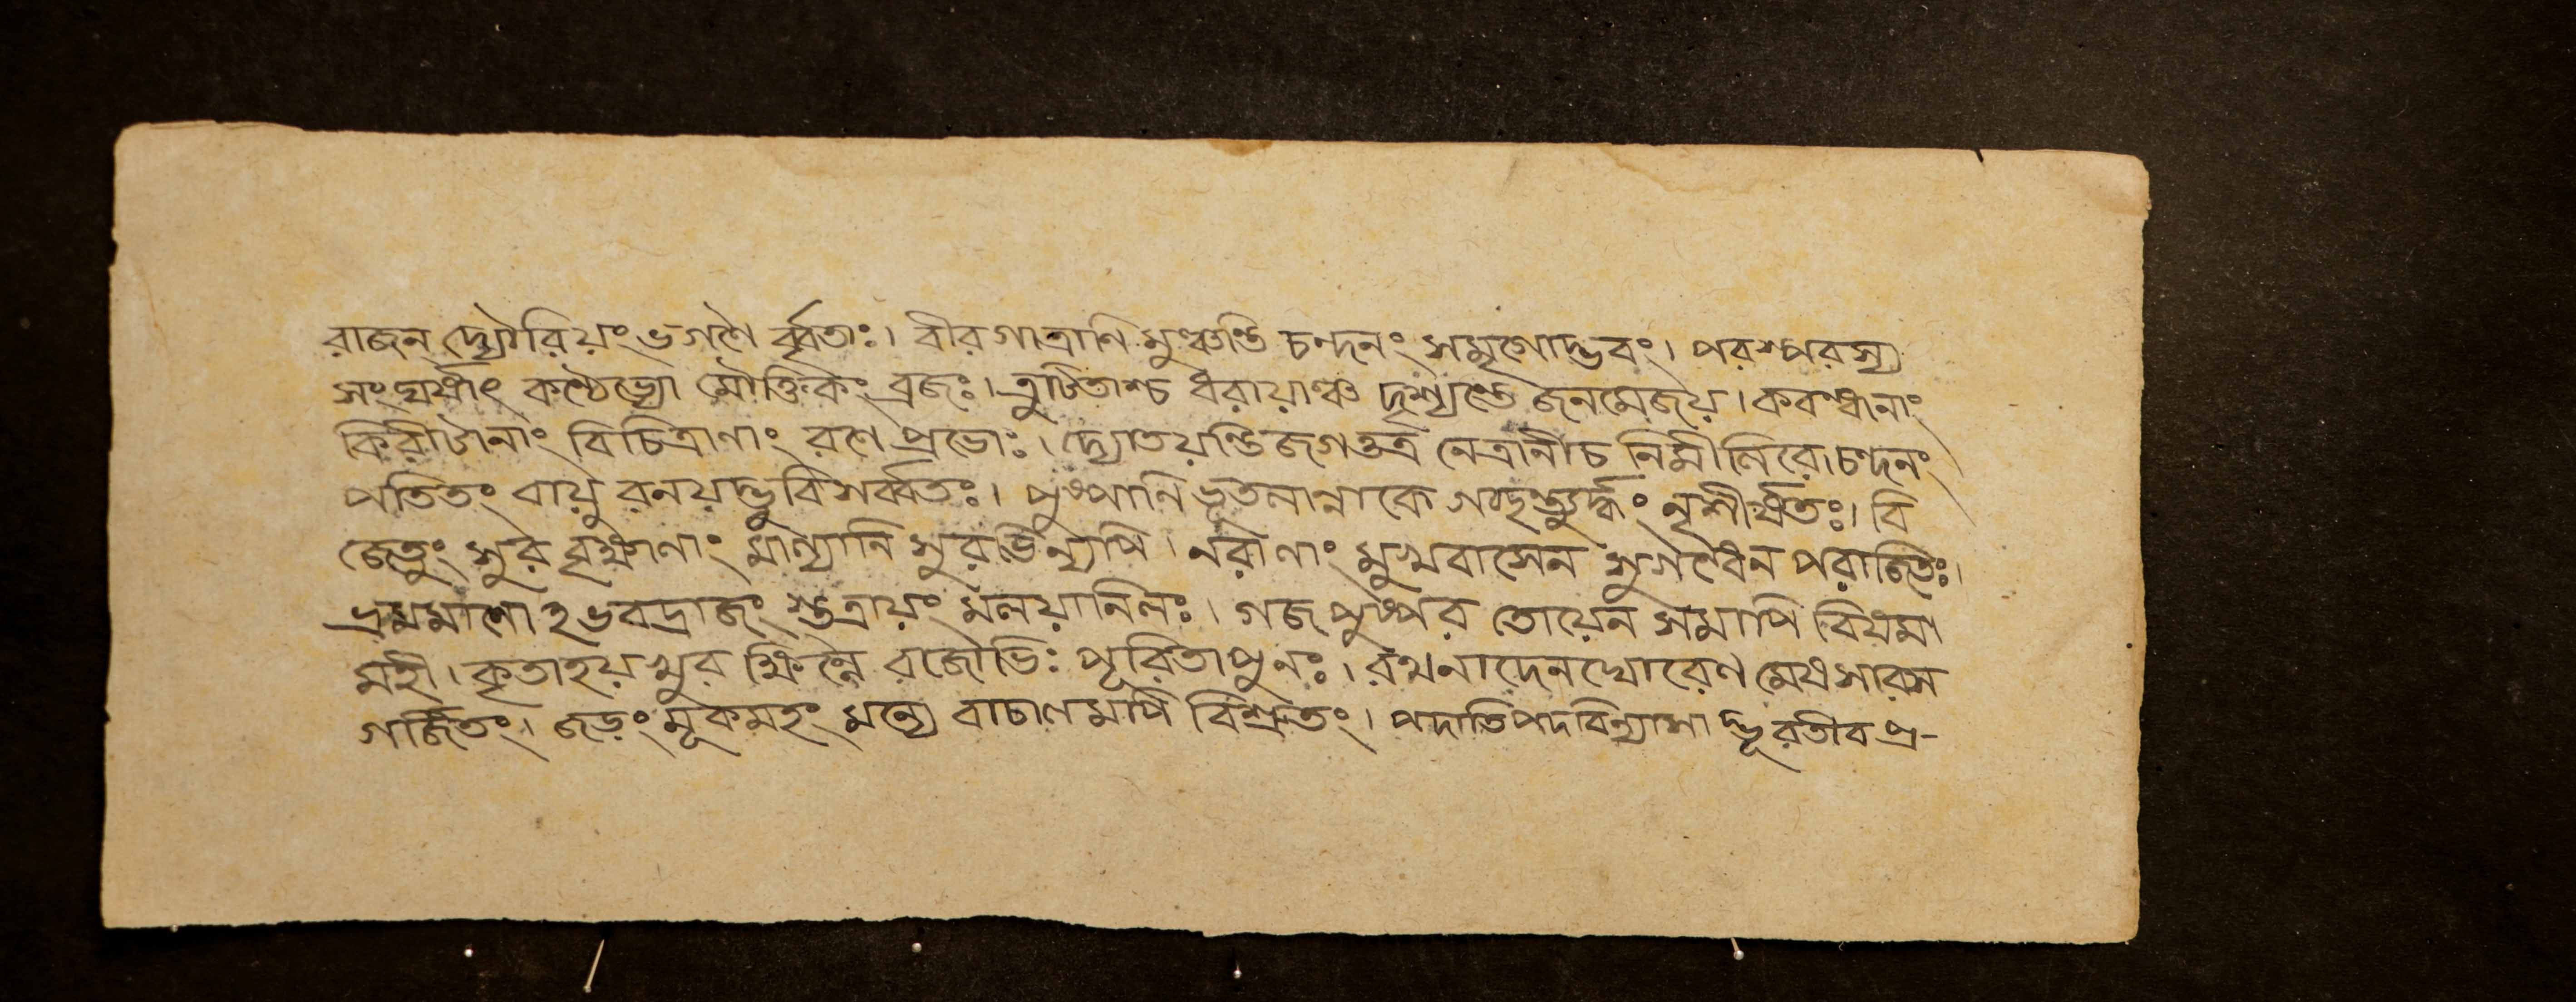 রাজন্ দ্যৌরিয়ং ভগণৈ র্ব্বৃতাঃ। বীরগাত্রাণি মুঞ্চন্তি চন্দনং সমৃগোদ্ভবং। পরস্পরস্য
সংঘর্ষাৎ কণ্ঠেভ্যো মৌক্তিকং ব্রজঃ। ত্রুটিতাশ্চ ধরায়াঞ্চ দৃশ্যন্তে জনমেজয়। কবন্ধানাং
কিরীটানাং বিচিত্রাণাং রণে প্রভোঃ। দ্যোতয়ন্তি জগত্তত্র নেত্রানীচ নিমীলিরে। চন্দনং
পতিতং বায়ু রনয়দ্ভুবিসর্ব্বতঃ। পুষ্পানি ভূতলান্নাকে গচ্ছন্ত্যুর্দ্ধং নৃশীর্ষতঃ। বি
জেতুং সুর বৃক্ষাণাং মাল্যানি সুরভিন্যপি। নরাণাং মুখবাসেন সুগন্ধেন পরাজিতঃ।
ভ্রমমাণো ঽভবদ্রাজং স্তত্রায়ং মলয়ানিলঃ। গজপুষ্পর তোয়েন সমাপি বিষমা
মহী। কৃতাহয়খুর ক্ষিন্নৈ রজৌভিঃ পূরিতাপুনঃ। রথনাদেনঘোরেণ মেঘসারস
গর্জিতং। জড়ং মূকমহং মন্যে বাচালমপি বিশ্রুতং। পদাতিপদবিন্যাসা দ্ভূরতীব প্র-